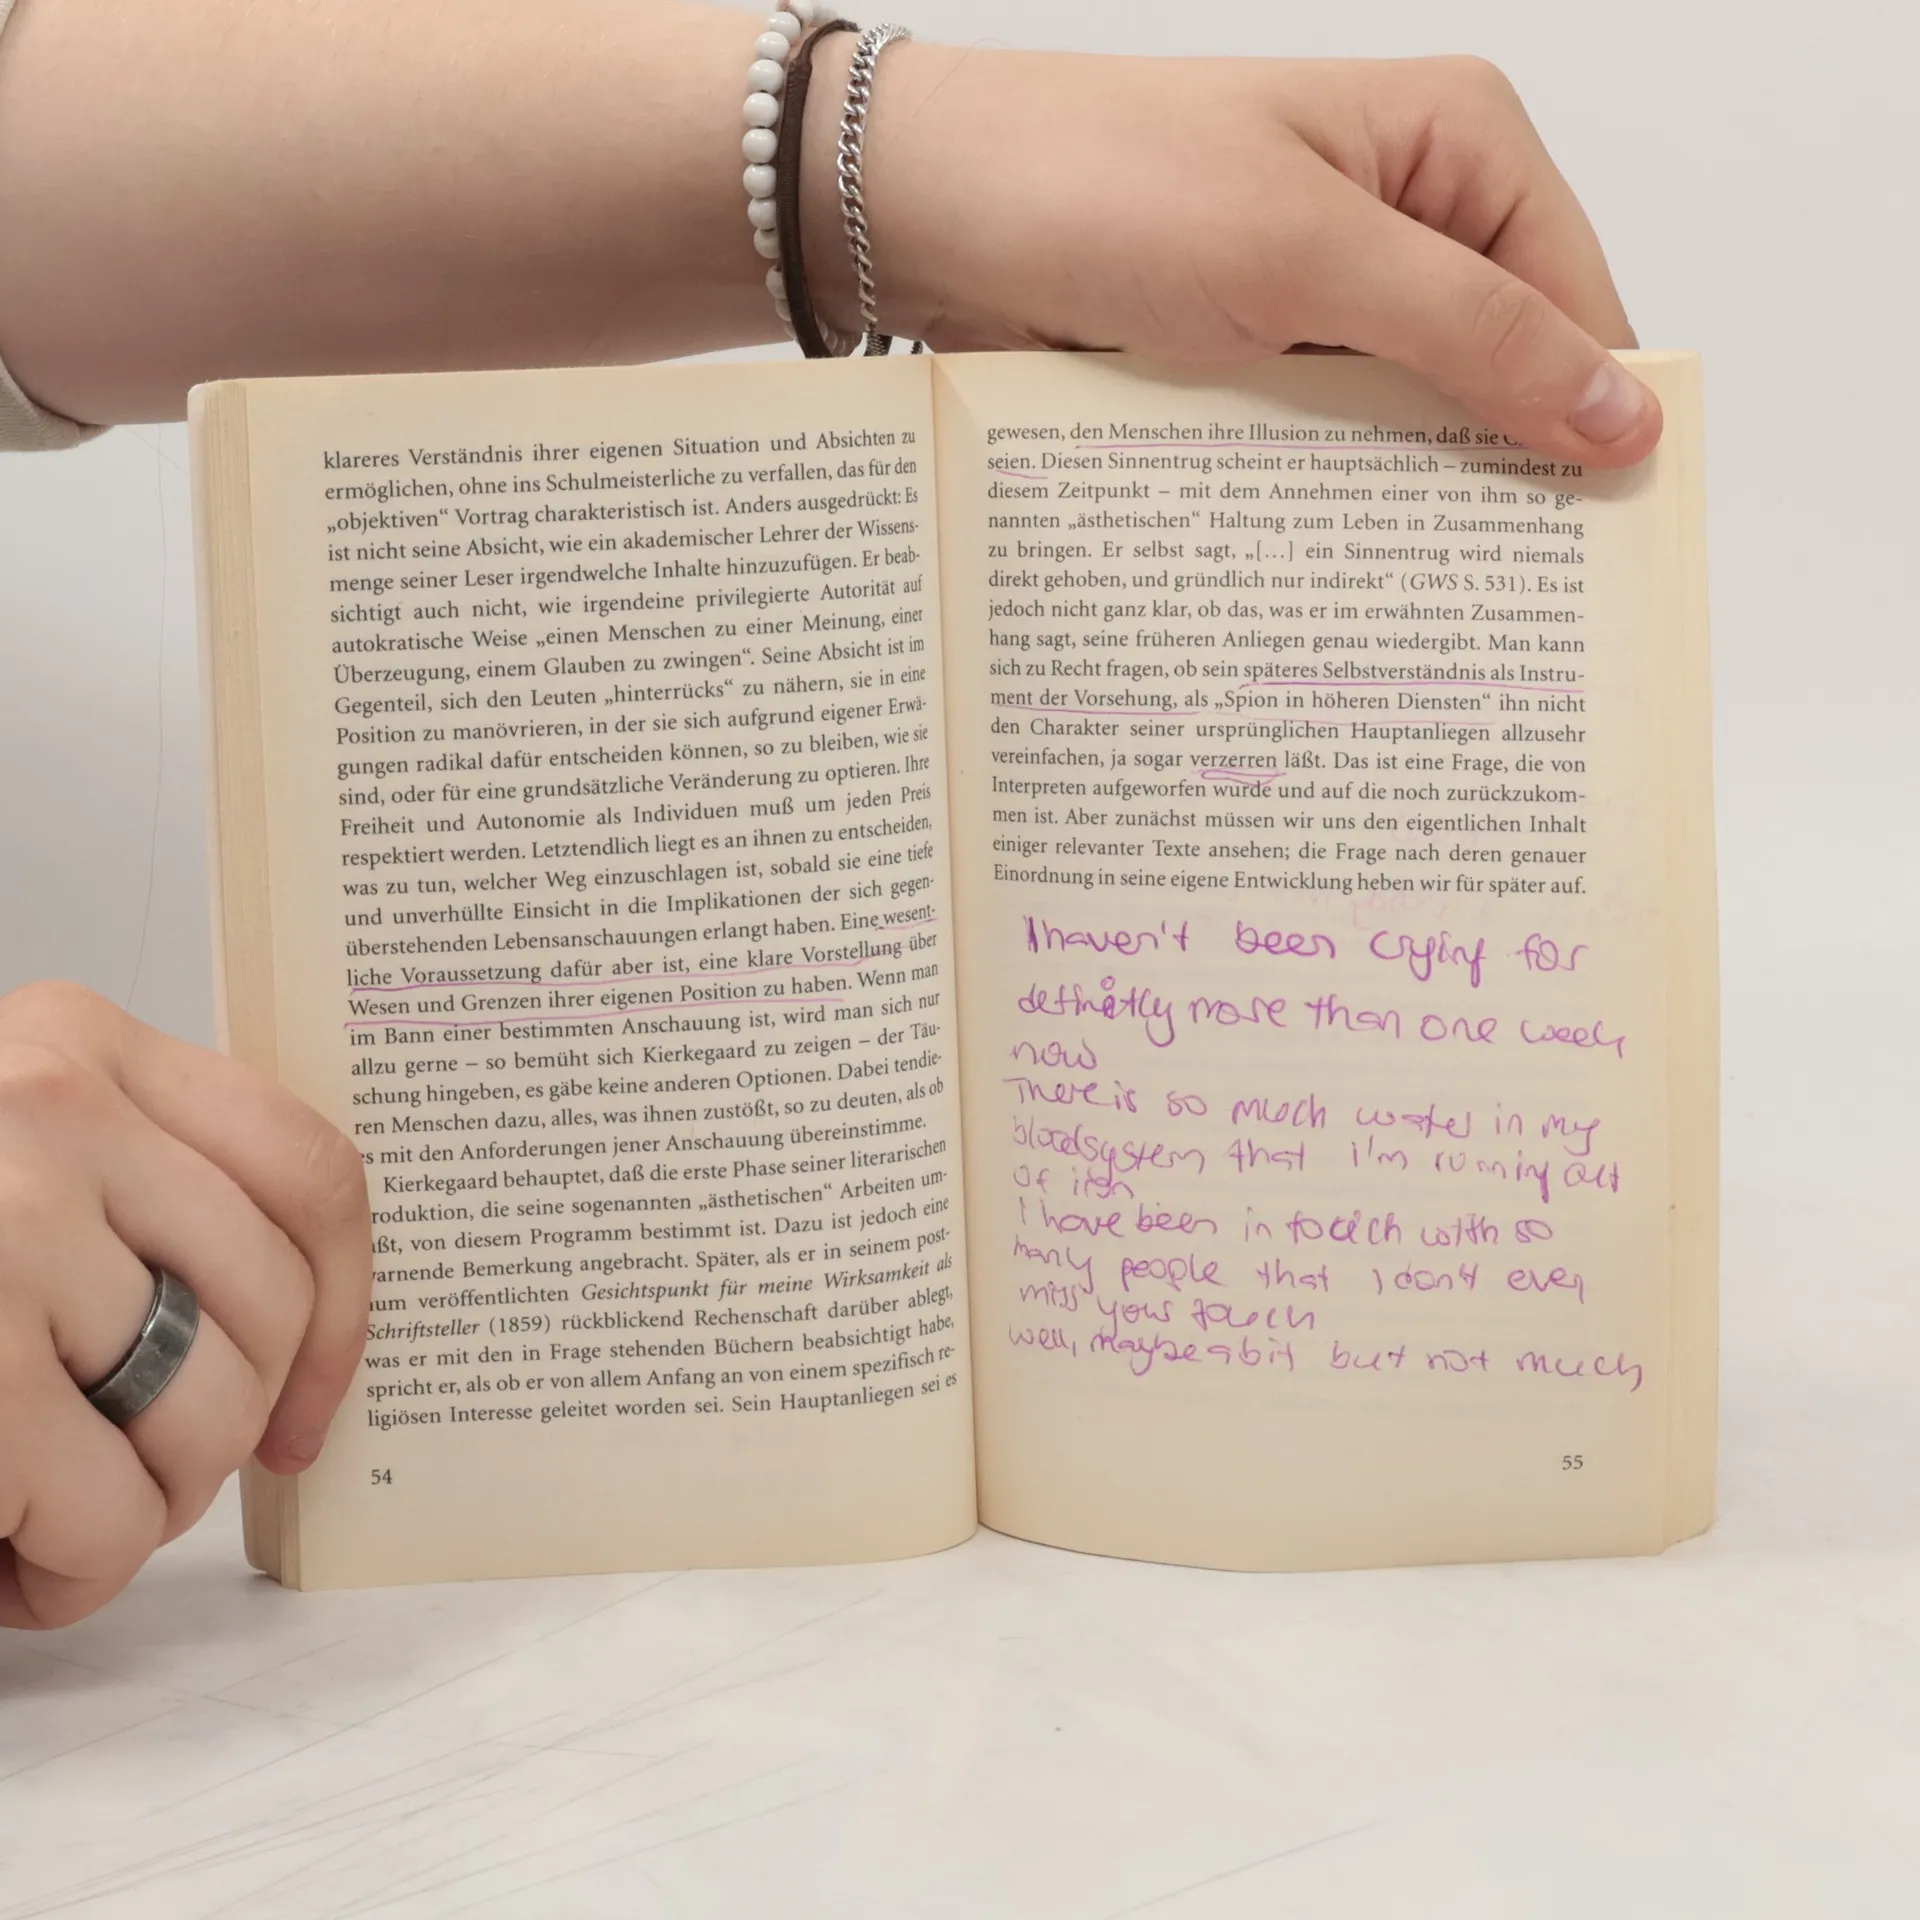 klareres Verständnis ihrer eigenen Situation und Absichten zu
ermöglichen, ohne ins Schulmeisterliche zu verfallen, das für den
„objektiven“ Vortrag charakteristisch ist. Anders ausgedrückt: Es
ist nicht seine Absicht, wie ein akademischer Lehrer der Wissens-
menge seiner Leser irgendwelche Inhalte hinzuzufügen. Er beab-
sichtigt auch nicht, wie irgendeine privilegierte Autorität auf
autokratische Weise „einen Menschen zu einer Meinung, einer
Überzeugung, einem Glauben zu zwingen“. Seine Absicht ist im
Gegenteil, sich den Leuten „hinterrücks“ zu nähern, sie in eine
Position zu manövrieren, in der sie sich aufgrund eigener Erwä-
gungen radikal dafür entscheiden können, so zu bleiben, wie sie
sind, oder für eine grundsätzliche Veränderung zu optieren. Ihre
Freiheit und Autonomie als Individuen muß um jeden Preis
respektiert werden. Letztendlich liegt es an ihnen zu entscheiden,
was zu tun, welcher Weg einzuschlagen ist, sobald sie eine tiefe
und unverhüllte Einsicht in die Implikationen der sich gegen-
überstehenden Lebensanschauungen erlangt haben. Eine wesent-
liche Voraussetzung dafür aber ist, eine klare Vorstellung über
Wesen und Grenzen ihrer eigenen Position zu haben. Wenn man
im Bann einer bestimmten Anschauung ist, wird man sich nur
allzu gerne – so bemüht sich Kierkegaard zu zeigen – der Täu-
schung hingeben, es gäbe keine anderen Optionen. Dabei tendie-
ren Menschen dazu, alles, was ihnen zustößt, so zu deuten, als ob
es mit den Anforderungen jener Anschauung übereinstimme.
Kierkegaard behauptet, daß die erste Phase seiner literarischen
roduktion, die seine sogenannten „ästhetischen“ Arbeiten um-
ßt, von diesem Programm bestimmt ist. Dazu ist jedoch eine
arnende Bemerkung angebracht. Später, als er in seinem post-
um veröffentlichten Gesichtspunkt für meine Wirksamkeit als
Schriftsteller (1859) rückblickend Rechenschaft darüber ablegt,
was er mit den in Frage stehenden Büchern beabsichtigt habe,
spricht er, als ob er von allem Anfang an von einem spezifisch re-
ligiösen Interesse geleitet worden sei. Sein Hauptanliegen sei es
54
gewesen, den Menschen ihre Illusion zu nehmen, daß sie
seien. Diesen Sinnentrug scheint er hauptsächlich – zumindest zu
diesem Zeitpunkt – mit dem Annehmen einer von ihm so ge-
nannten „ästhetischen“ Haltung zum Leben in Zusammenhang
zu bringen. Er selbst sagt, „[...] ein Sinnentrug wird niemals
direkt gehoben, und gründlich nur indirekt“ (GWS S. 531). Es ist
jedoch nicht ganz klar, ob das, was er im erwähnten Zusammen-
hang sagt, seine früheren Anliegen genau wiedergibt. Man kann
sich zu Recht fragen, ob sein späteres Selbstverständnis als Instru-
ment der Vorsehung, als „Spion in höheren Diensten“ ihn nicht
den Charakter seiner ursprünglichen Hauptanliegen allzusehr
vereinfachen, ja sogar verzerren läßt. Das ist eine Frage, die von
Interpreten aufgeworfen wurde und auf die noch zurückzukom-
men ist. Aber zunächst müssen wir uns den eigentlichen Inhalt
einiger relevanter Texte ansehen; die Frage nach deren genauer
Einordnung in seine eigene Entwicklung heben wir für später auf.
I haven't been crying for
definitly more than one week
now
There is so much water in my
bloodsystem that i'm running out
of iron
I have been in touch with so
many people that I don't even
miss your touch
well, maybe a bit but not much
55